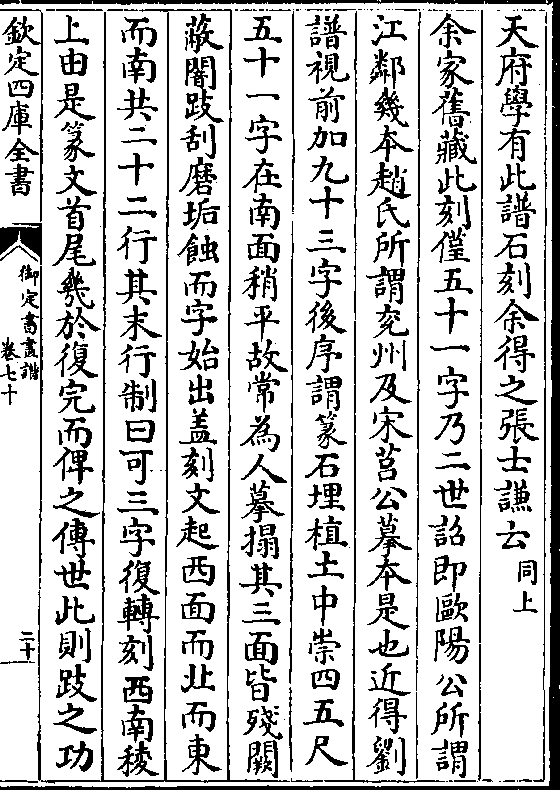 天府學有此譜石刻余得之張士謙云同上
余家舊藏此刻僅五十一字乃二世詔即歐陽公所謂
江鄰幾本趙氏所謂兖州及宋莒公摹本是也近得劉
譜視前加九十三字後序謂篆石埋植土中崇四五尺
五十一字在南面稍平故常為人摹搨其三面皆殘闕
蔽闇跂刮磨垢蝕而字始出蓋刻文起西面而北而東
而南共二十二行其末行制曰可三字復轉刻西南稜
上由是篆文首尾幾於復完而俾之傳世此則跂之功
欽定四庫全書
御定書畫譜
卷七十
二十